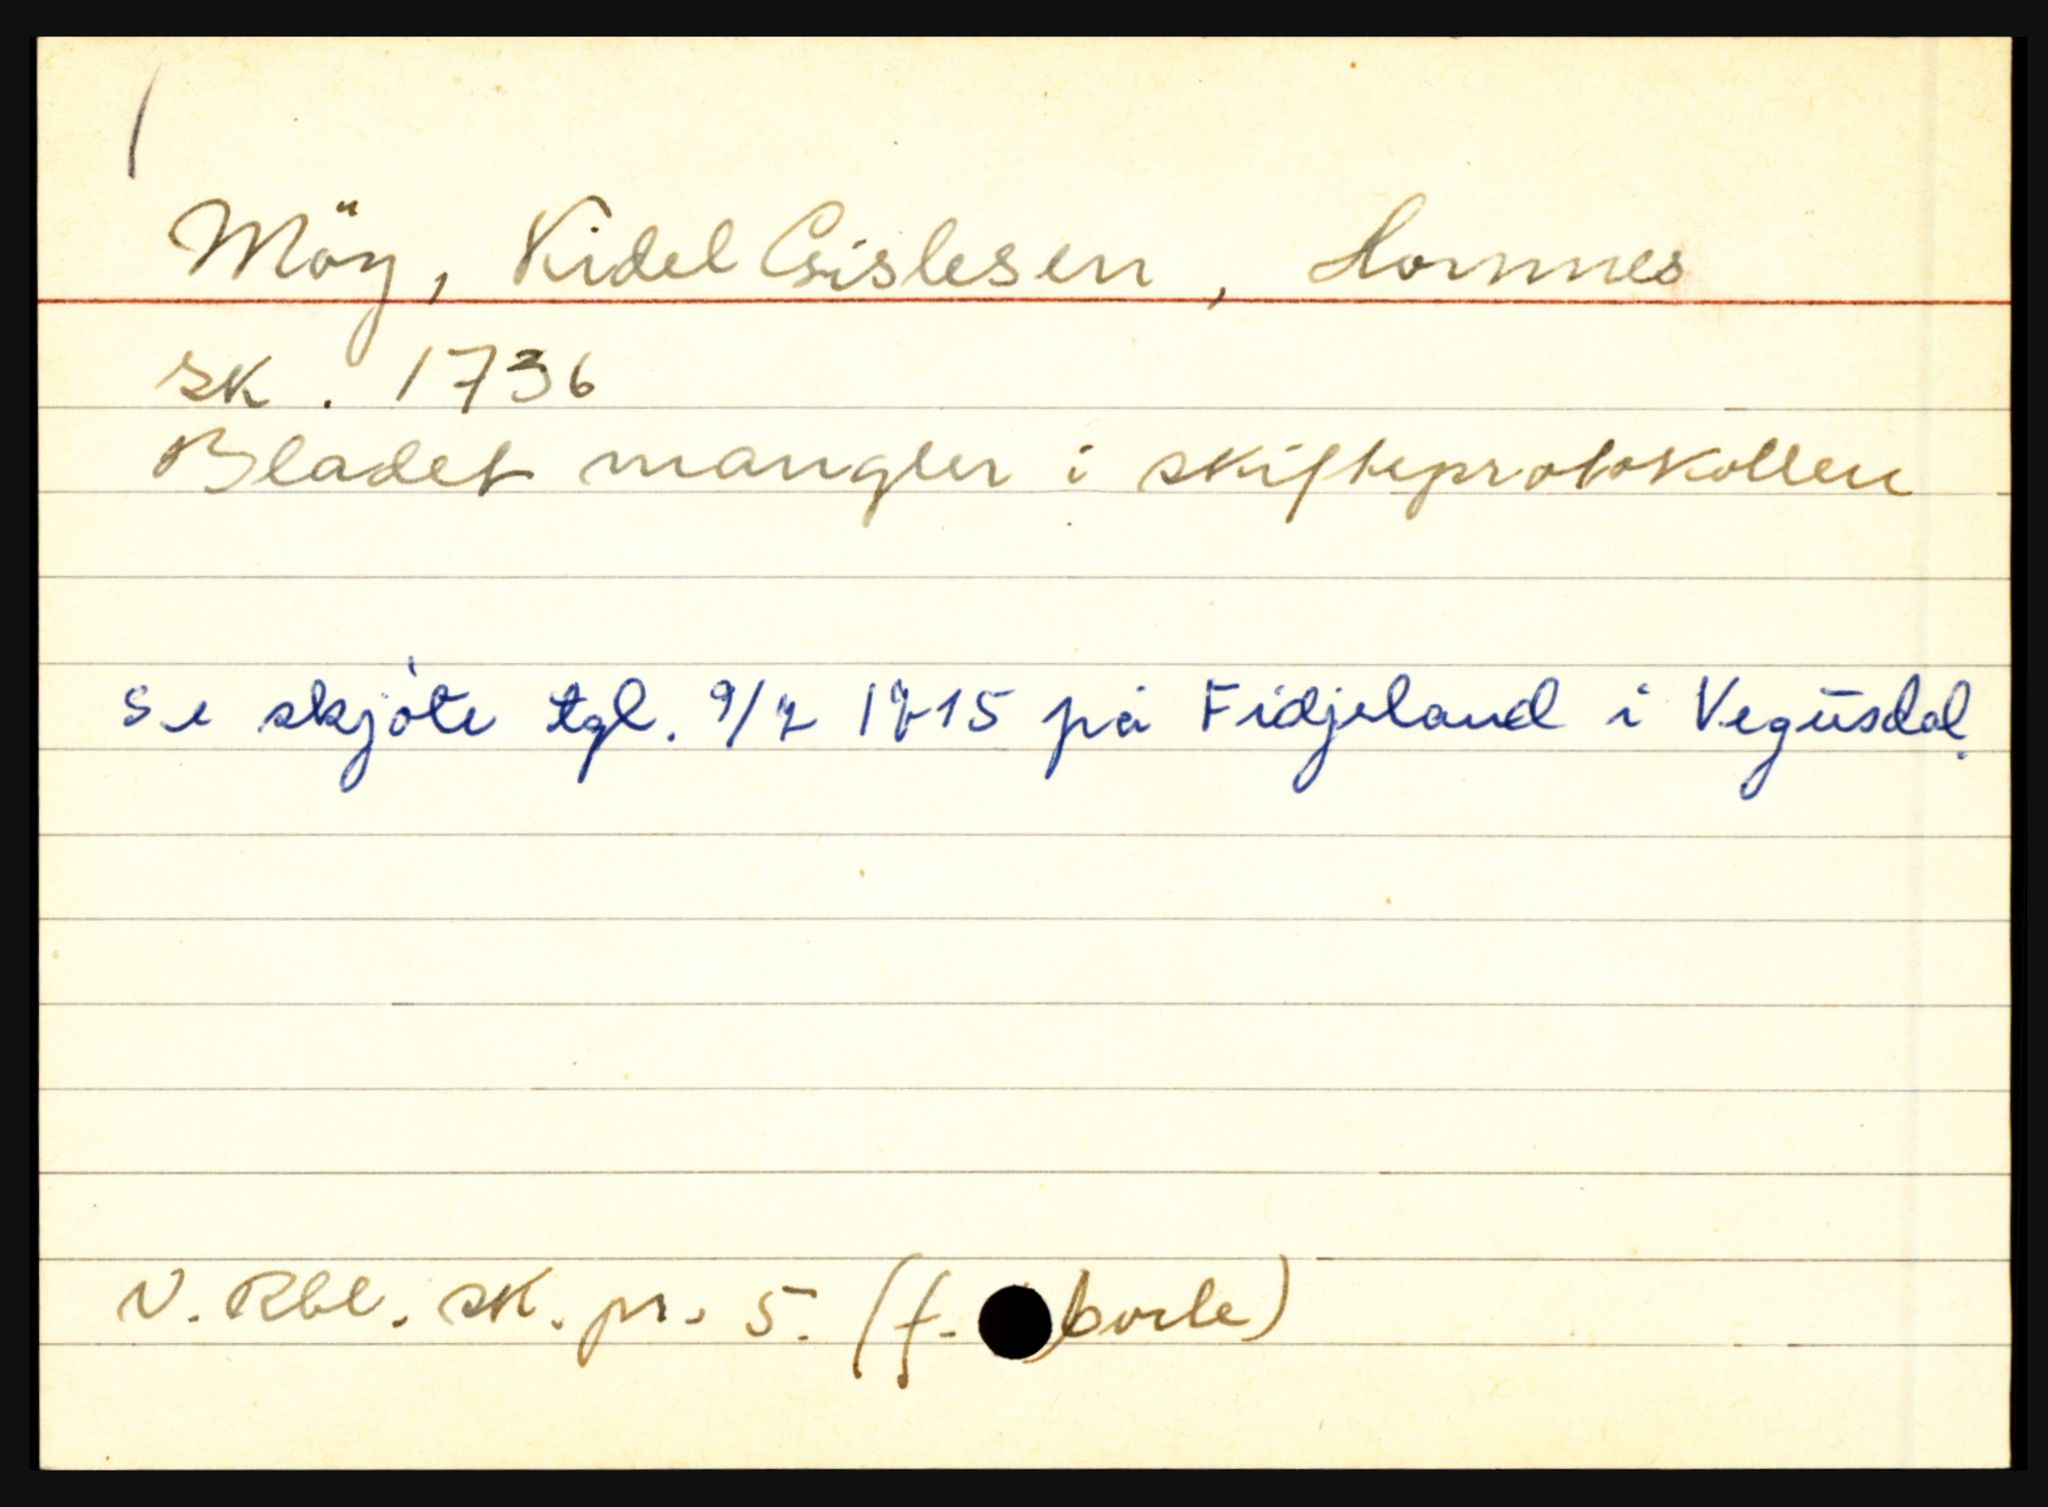 Möy, Kidel Gislesen, Hornnes
sk. 1736
Bladet mangler i skifteprotokollen
Se skjöte tgl. 9/2 1715 på Fidjeland i Vegusdal.
N. Rbl. sk. pr. 5. (f. borle)